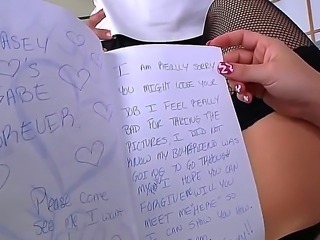 CASEY
'S
BABE
FOREVER
Please come
see me I want
I AM REALLY SORRY
YOU MIGHT LOSE YOUR
JOB I FEEL REALLY
BAD FOR TAKING THE
PICTURES I DID NOT
KNOW MY BOYFRIEND WAS
GOING TO GO THROUGH
MY I HOPE YOU CAN
FORGIVE WILL YOU
MEET ME HERE SO
I CAN SHOW YOU HOW